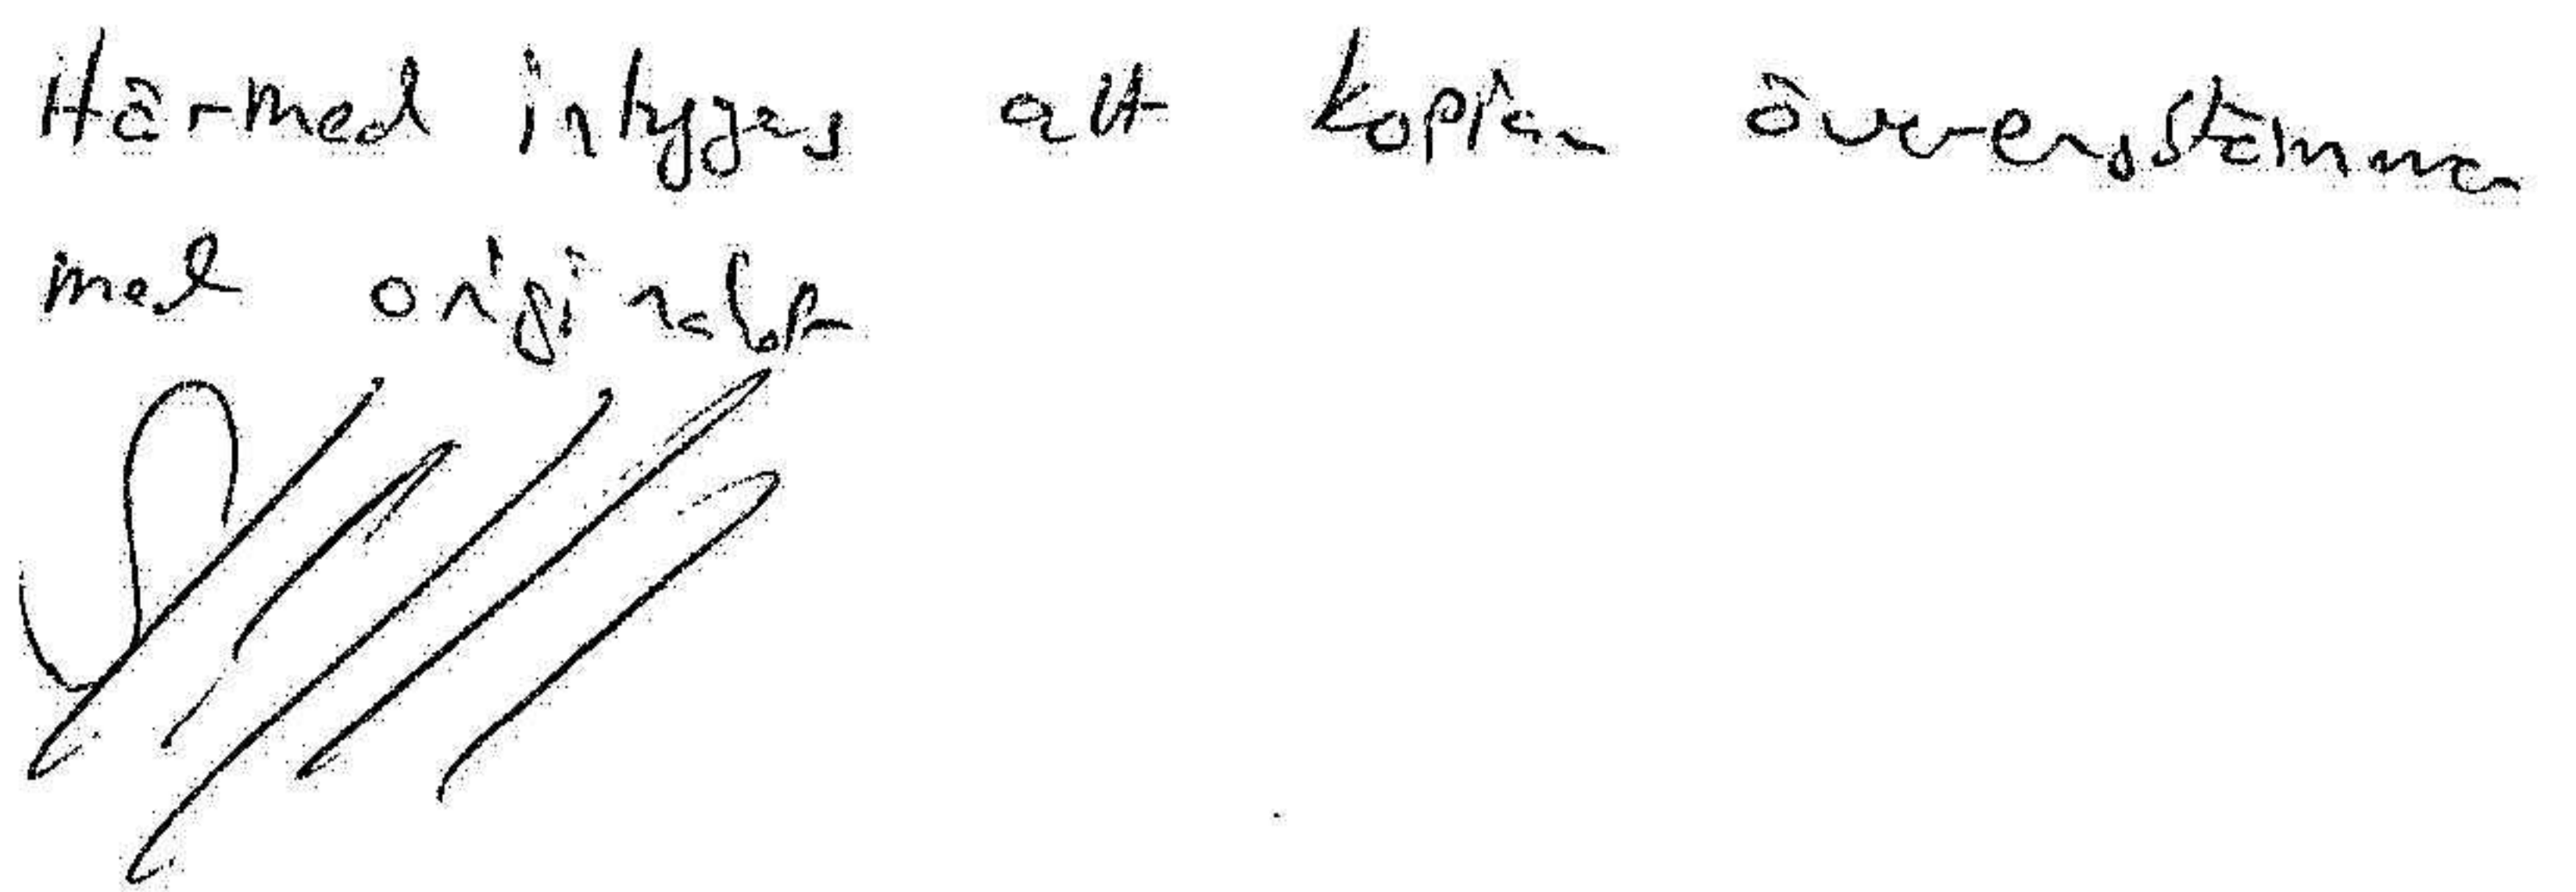 Härmed intygas att kopian överensstämmer
med originalet